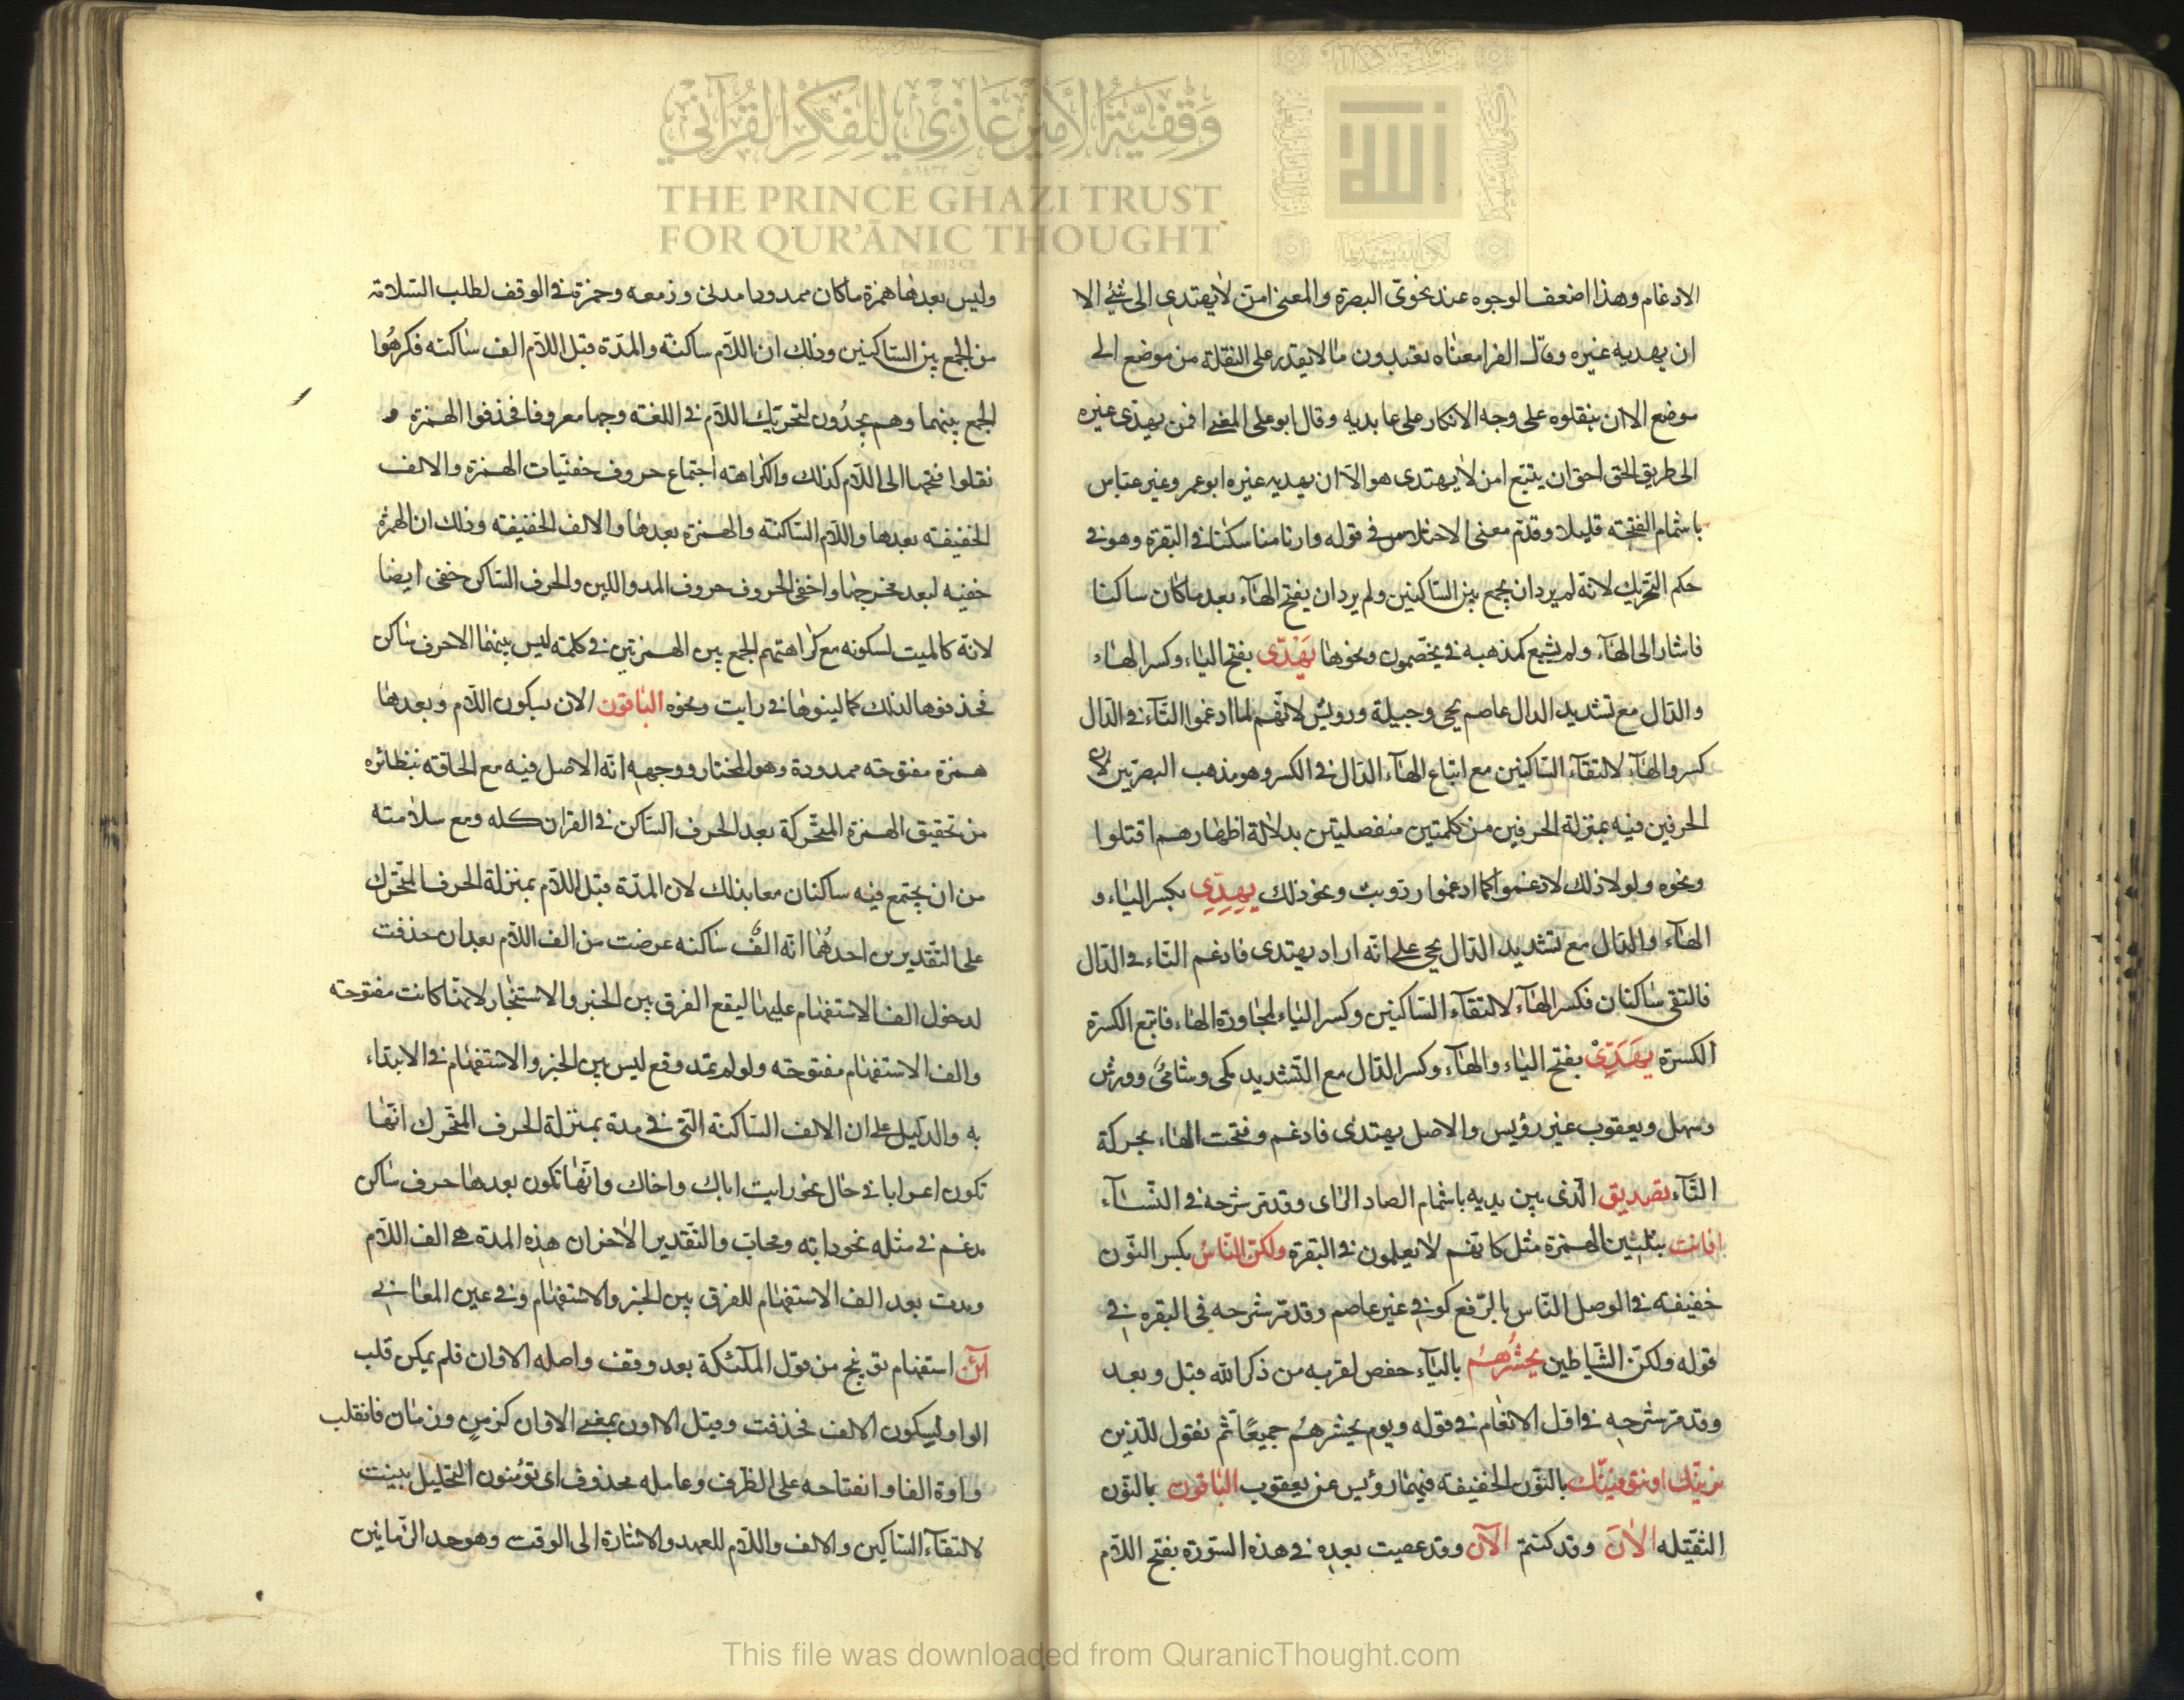 وقفية الأمير غازي للفكر القرآني
THE PRINCE GHAZI TRUST
FOR QUR'ĀNIC THOUGHT
الادغام وهذا اضعف الوجوه عند نحوتى البصرة والمعنى امن لا يهتدى الى شئ الا
ان يهديه غيره وقال الفرا معناه تعبدون ما لا يقدر على النقلة من موضع الى
موضع الا ان ينقلوه على وجه الانكار على عابديه وقال ابوعلى المعنى افمن يهدى غيره
الى طريق الحق احق ان يتبع امن لا يهتدى هو الا ان يهديه غيره ابوعمر وغير عباس
باشمام الفتحة قليلا وقدم معنى الاختلاس فى قوله وارنا مناسكنا فى البقرة وهو فى
حكم التحريك لانه لم يرد ان يجمع بين الساكنين ولم يرد ان يفتح الهآء بعد ما كان ساكنا
فاشار الى الهآء ولم يشبع كمذهبه فى يخصمون ونحوها يَهِدّى بفتح الياء وكسر الهاء
والدال مع تشديد الدال عاصم يحى وجبلة ورويس لانهم لما ادغموا التآء فى الدال
كسروا الهآء لالتقآء الساكنين مع اتباع الهآء الدال فى الكسر وهو مذهب البصريين لان
الحرفين فيه بمنزلة الحرفين من كلمتين منفصلتين بدلالة اظهارهم اقتتلوا
ونحوه ولولا ذلك لادغموا كما ادغموا ونحو ذلك يِهِدِّى بكسر الياء و
الهآء والدال مع تشديد الدال يحى على انه اراد يهتدى فادغم التاء فى الدال
فالتقى ساكنان فكسر الهآء لالتقآء الساكنين وكسر الياء لمجاورة الهاء فاتبع الكسرة
الكسرة يَهَدِّى بفتح الياء والهآء وكسر الدال مع التشديد مكى وشامى وورش
وسهل ويعقوب غير رؤيس والاصل يهتدى فادغم وفتحت الهاء بحركة
التآء تصديق الذى بين يديه باشمام الصاد الزاى وقد مر شرحه فى النسآء
افانت بتليين الهمزة مثل كانهم لا يعلمون فى البقرة ولكن الناسُ بكسر النون
خفيفة فى الوصل الناس بالرفع كوفى غير عاصم وقد مر شرحه فى البقره فى
قوله ولكن الشياطين يحشرهم بالياء حفص لقربه من ذكر الله قبل وبعد
وقد مر شرحه فى اول الانعام فى قوله ويوم يحشرهم جميعًا ثم نقول للذين
نرينك او نتوفينك بالنون الخفيفة فيهما رؤيس عن يعقوب الباقون بالنون
الثقيله الآن وقد كنتم الآن وقد عصيت بعده فى هذه السورة بفتح اللام
وليس بعدها همزة ما كان ممدودا مدنى وزمعه وحمزة فى الوقف لطلب السلامة
من الجمع بين الساكنين وذلك ان اللام ساكنة والمدة قبل اللام الف ساكنه فكرهُوا
الجمع بينهما وهم يجدُون لتحريك اللام فى اللغة وجها معروفا فحذفوا الهمزة و
نقلوا فتحها الى اللام كذلك ولكراهته اجتماع حروف خفيّات الهمزة والالف
الخفيفة بعدها واللام الساكنة والهمزة بعدها والالف الخفيفة وذلك ان الهمزة
خفيه لبعد مخرجها واخفى الحروف حروف المد واللين والحرف الساكن خفى ايضا
لانه كالميت لسكونه مع كراهتهم الجمع بين الهمزتين فى كلمة ليس بينهما الا حرف ساكن
فحذفوها لذلك كما لينوها فى رايت ونحوه الباقون الان بسكون اللام وبعدها
همزة مفتوحة ممدودة وهو المختار ووجهه انه الاصل فيه مع الحاقه بنظائره
من تحقيق الهمزة المتحركة بعد الحرف الساكن فى القران كله ومع سلامته
من ان يجتمع فيه ساكنان معا بذلك لان المدة قبل اللام بمنزلة الحرف المتحرك
على التقديرين احدهُما انه الفٌ ساكنه عرضت من الف اللام بعد ان حذفت
لدخول الف الاستفهام عليها ليقع الفرق بين الخبر والاستخبار لانها كانت مفتوحته
والف الاستفهام مفتوحته ولو لم تمد وقع لبس بين الخبز والاستفهام فى الابتداء
به والدليل على ان الالف الساكنة التى فى مدة بمنزلة الحرف المتحرك انها
تكون اعرابا فى حال نحو رايت اباك واخاك وانها تكون بعدها حرف ساكن
مدغم فى مثله نحو دابه ومحاب والتقدير الاخران هذه المدة هى الف اللام
ومدت بعد الف الاستفهام للفرق بين الخبر والاستفهام وفى عين المعانى
آلن استفهام توبيخ من قول الملئكة بعد وقف واصله الاوان فلم يمكن قلب
الواو لسكون الالف فحذفت وقيل الاون بمعنى الاوان كزمن وزمان فانقلب
واوه الفا وانفتاحه على الظرف وعامله محذوف اى تؤمنون الخليل بنيت
لالتقآء الساكين والالف واللام للعهد والاشارة الى الوقت وهو حد الزمانين
This file was downloaded from QuranicThought.com